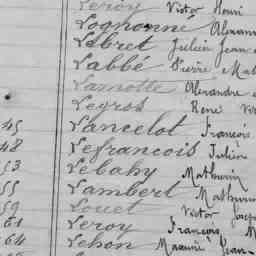 Leroy Victor Henri
Lognonné
Lebret Julien Jean
Labbé Pierre
Lamotte Alexandre
Legros René
45 Lancelot François
48 Lefrancois Julien
53 Lebahy Mathurin
55 Lambert Mathurin
59 Louet Victor Joseph
61 Leroy François
64 Lehon Maxime Jean